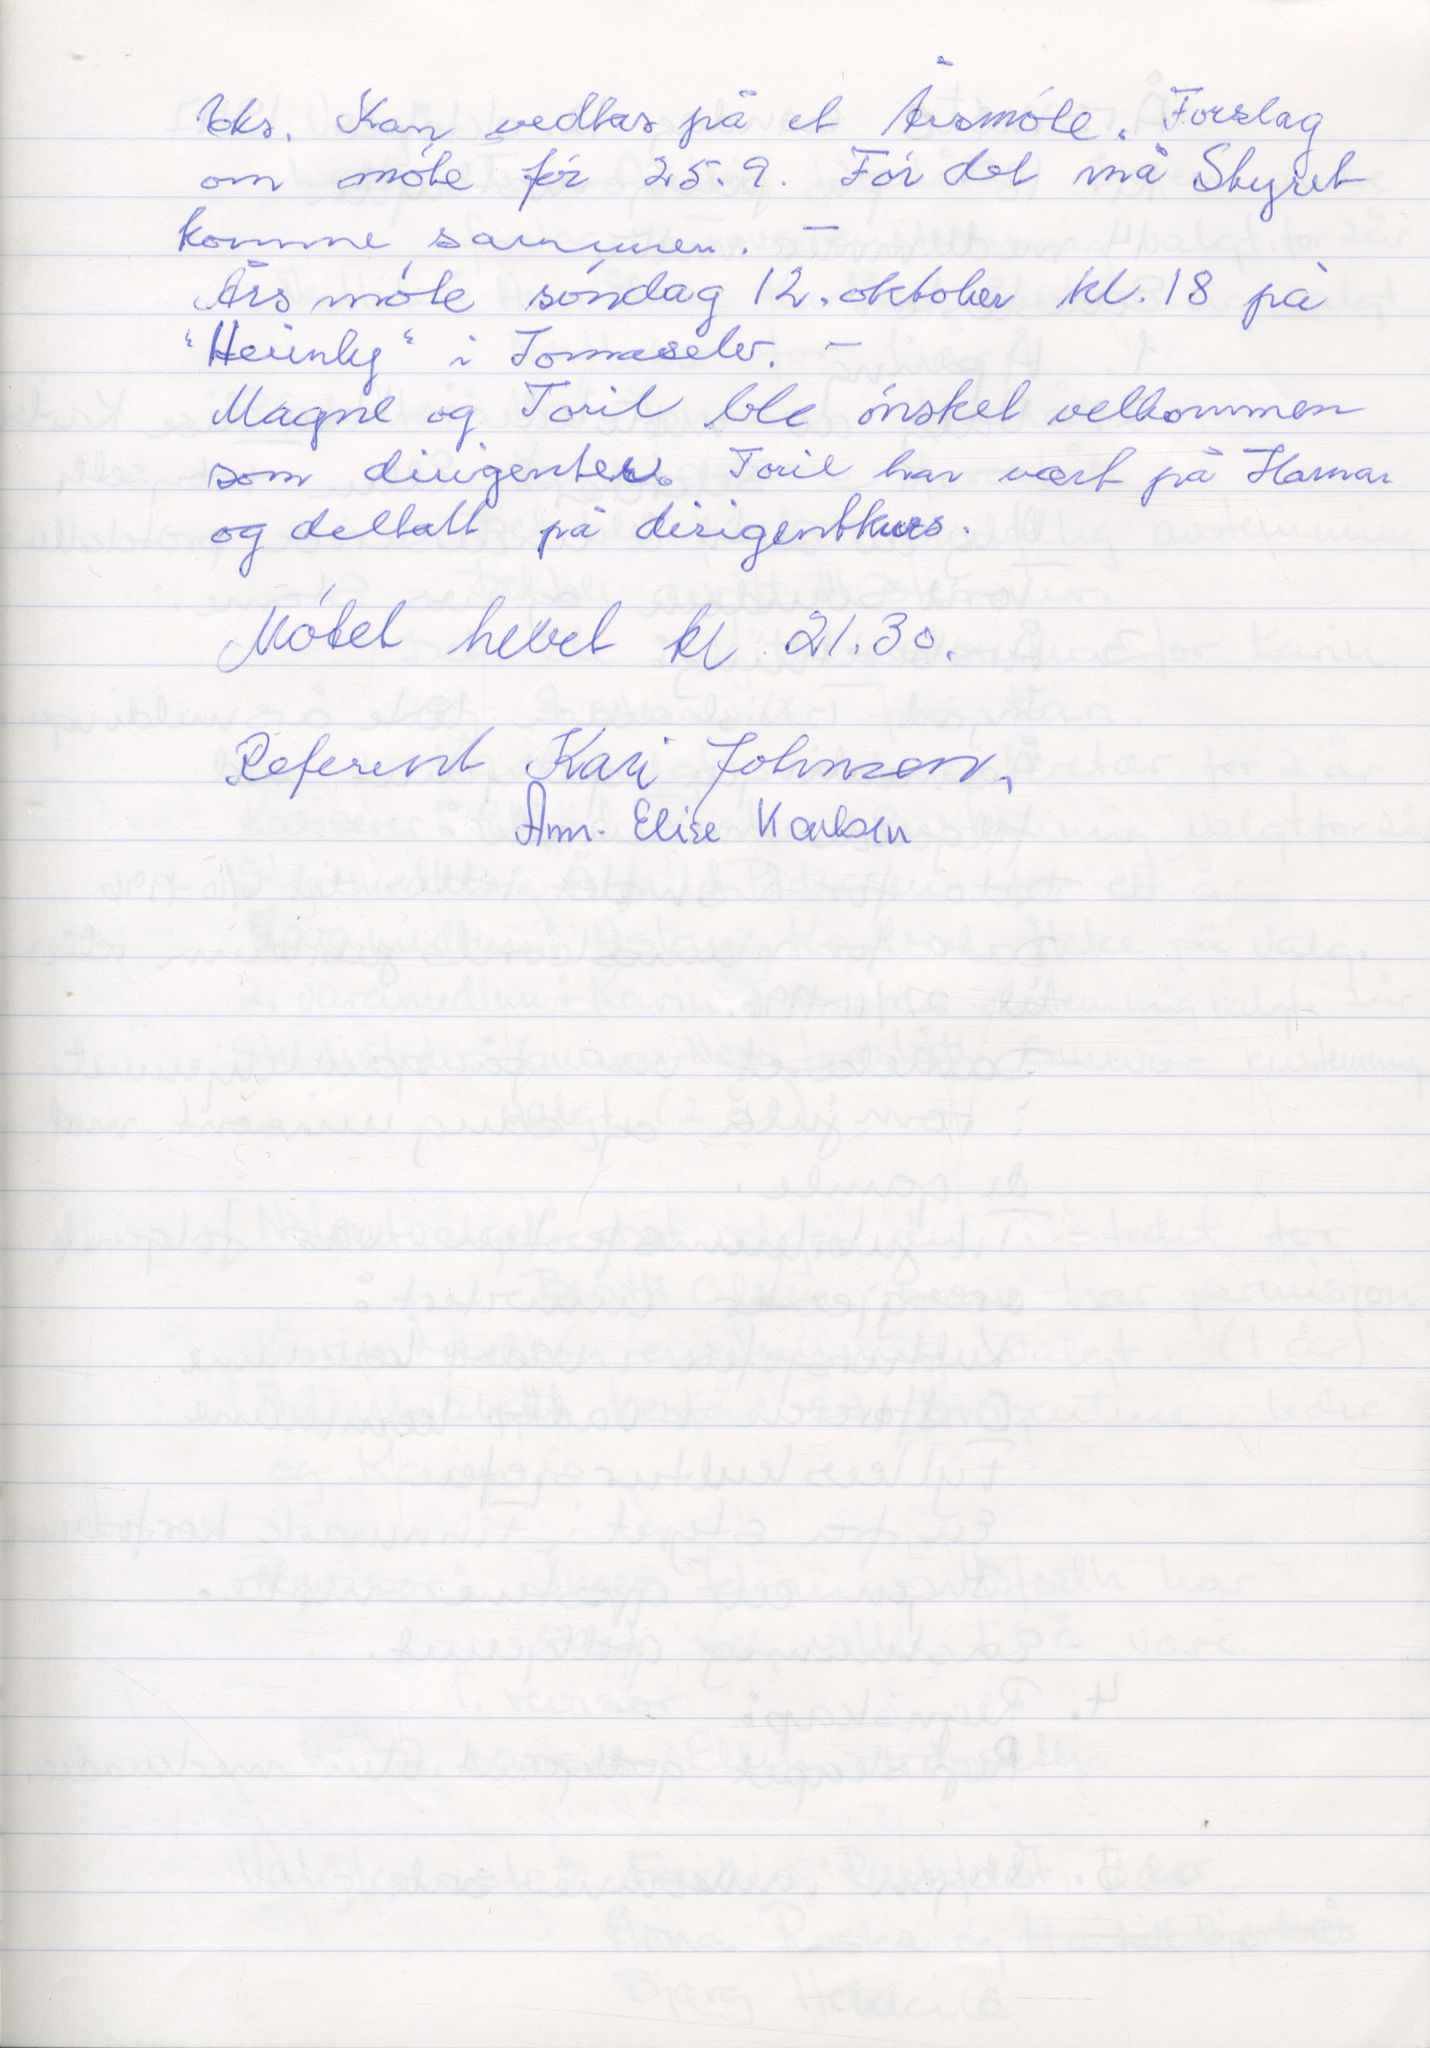 eks. Kan vedtas på et Årsmöte. Forslag
om möte før 25.9. Før det må Styret
komme sammen. —
Års möte söndag 12. oktober kl. 18 på
"Heimly" i Tomaselv. —
Magne og Toril ble önsket velkommen
som dirigenter. Toril har vært på Hamar
og deltatt på dirigentkurs.
Mötet hevet kl 21.30.
Referent Kari Johnsen,
Ann-Elise Karlsen